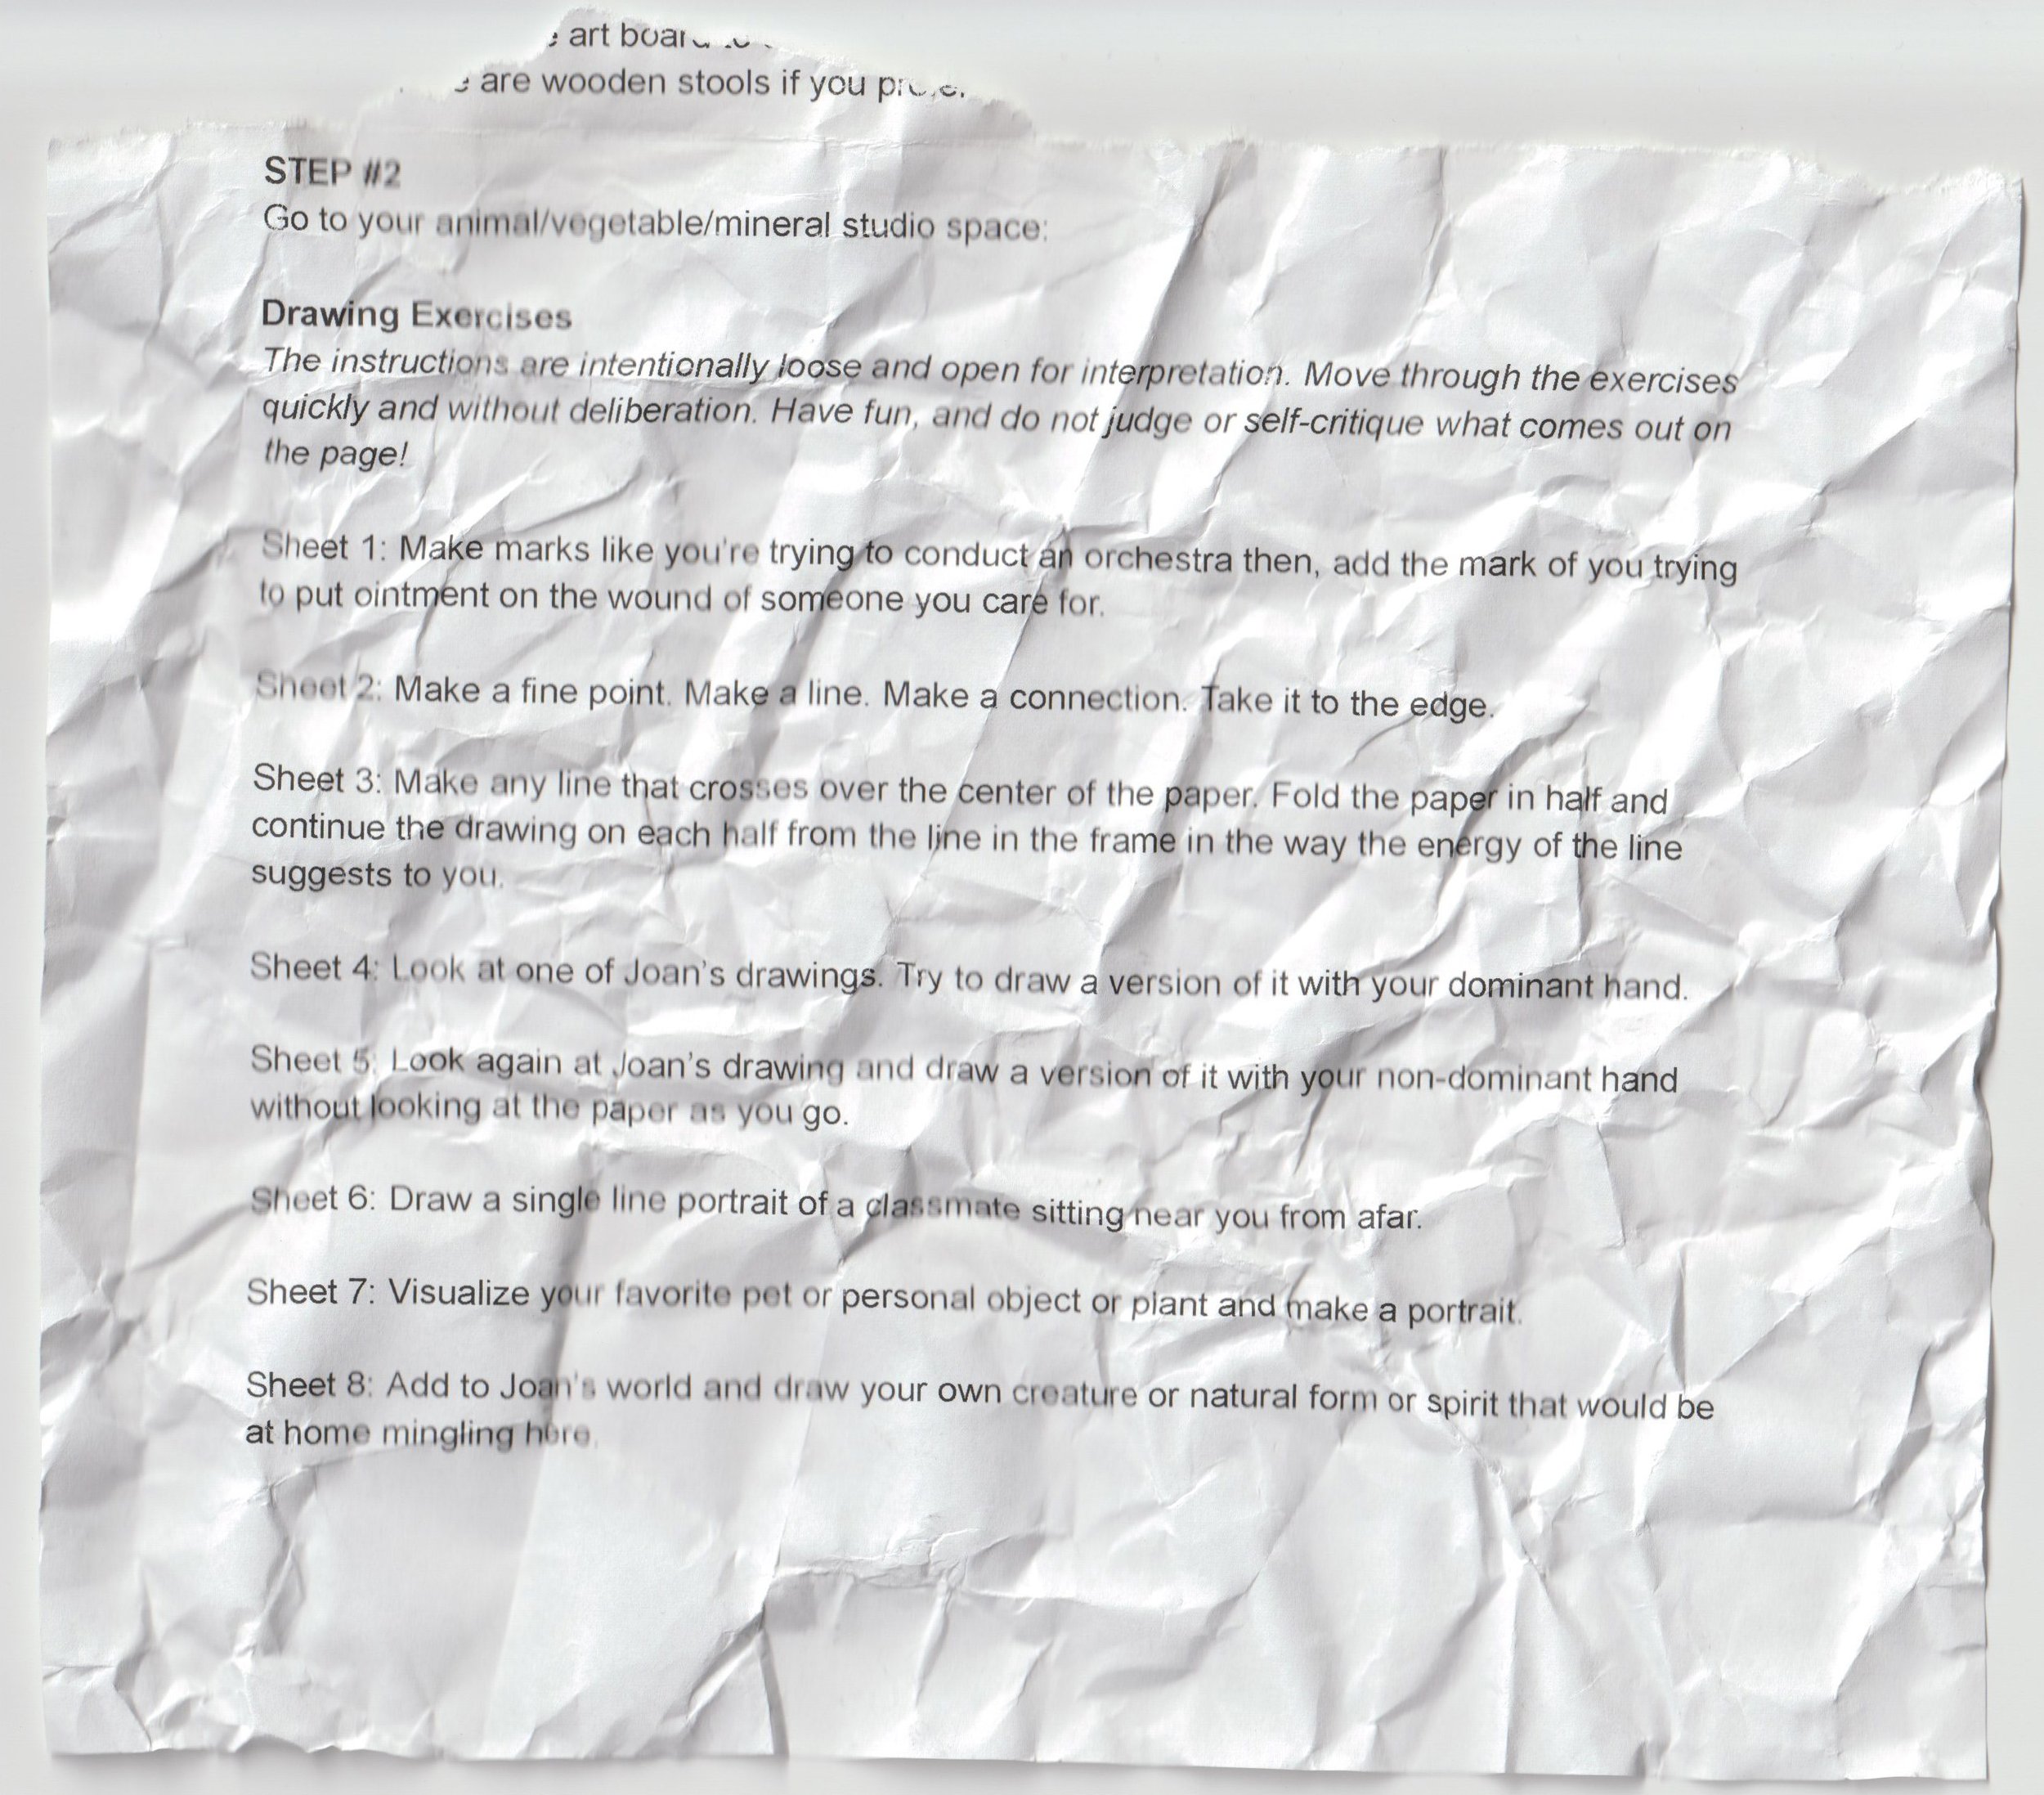 art
are wooden stools if you
STEP #2
Go to your animal/vegetable/mineral studio space:
Drawing Exercises
The instructions are intentionally loose and open for interpretation. Move through the exercises
quickly and without deliberation. Have fun, and do not judge or self-critique what comes out on
the page!
Sheet 1: Make marks like you're trying to conduct an orchestra then, add the mark of you trying
to put ointment on the wound of someone you care for.
Sheet 2: Make a fine point. Make a line. Make a connection. Take it to the edge.
Sheet 3: Make any line that crosses over the center of the paper. Fold the paper in half and
continue the drawing on each half from the line in the frame in the way the energy of the line
suggests to you.
Sheet 4: Look at one of Joan's drawings. Try to draw a version of it with your dominant hand.
Sheet 5: Look again at Joan's drawing and draw a version of it with your non-dominant hand
without looking at the paper as you go.
Sheet 6: Draw a single line portrait of a classmate sitting near you from afar.
Sheet 7: Visualize your favorite pet or personal object or plant and make a portrait.
Sheet 8: Add to Joan's world and draw your own creature or natural form or spirit that would be
at home mingling here.